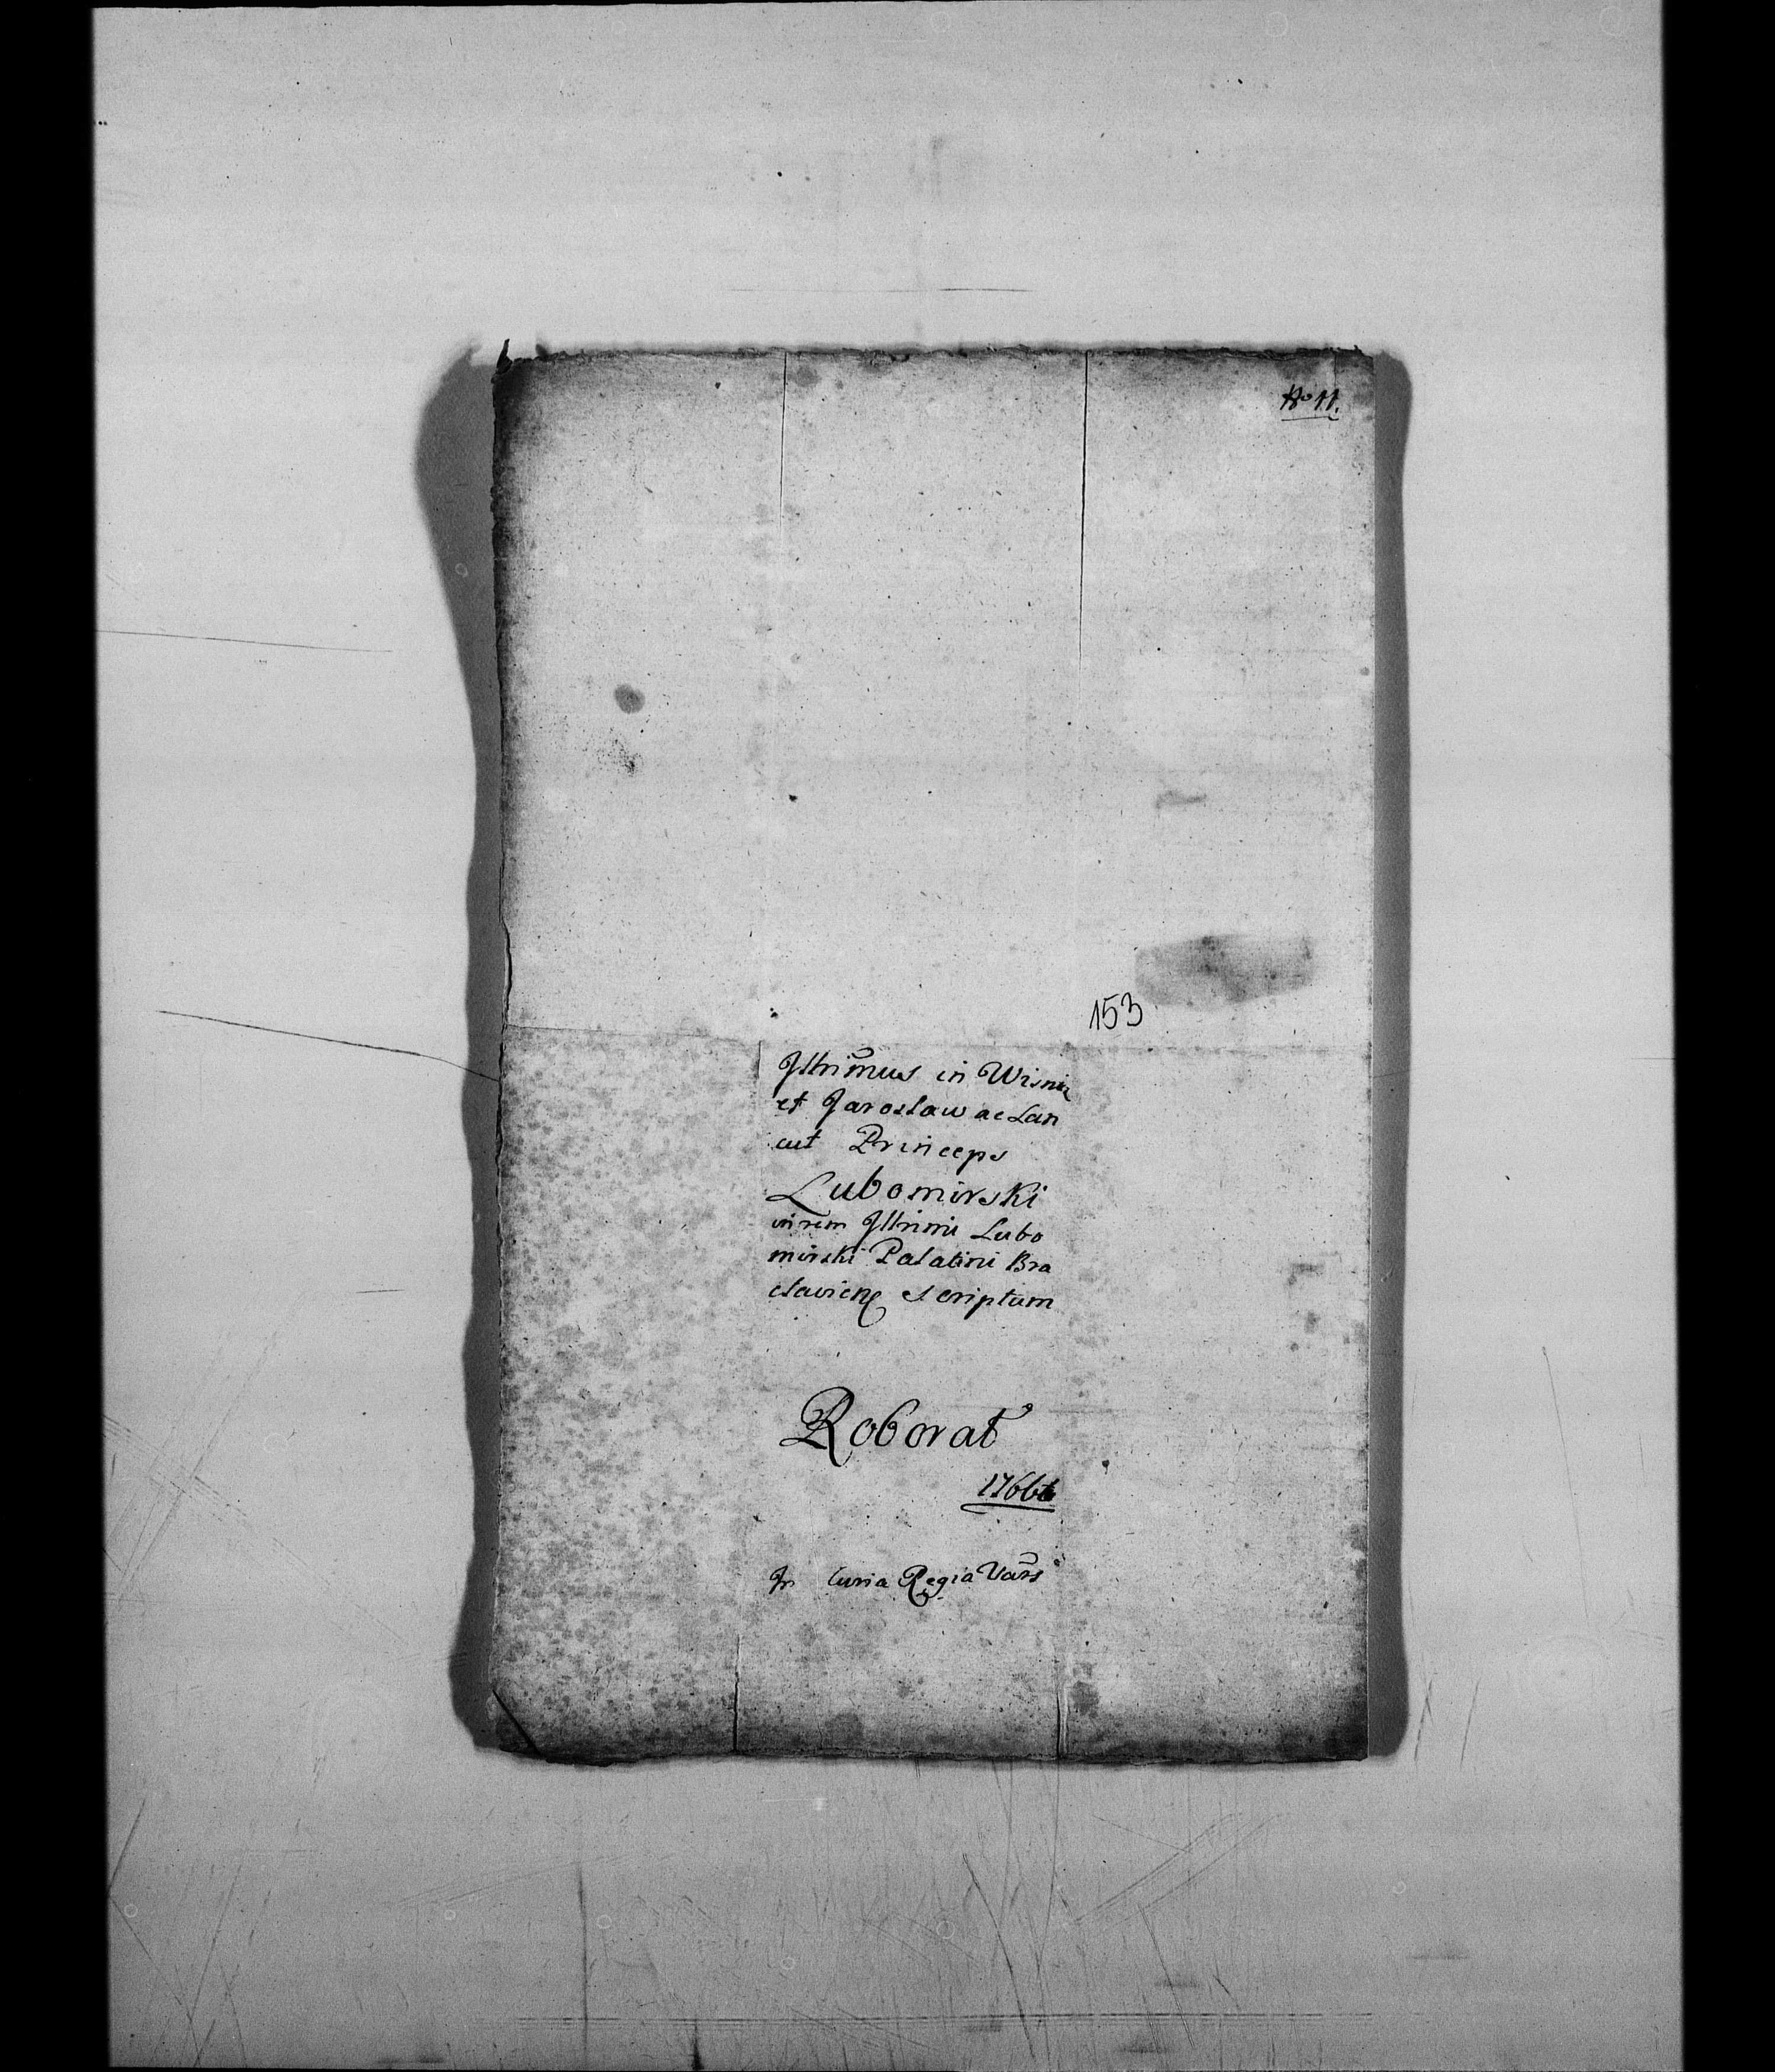 No 11.
153
Illrimus in Wisnic
et Jaroslaw ac Lan
cut Princeps
Lubomirski
in rem Illrimi Lubo
mirski Palatini Bra
claviens scriptum
Roborat
1766
In Curia Regia Vars